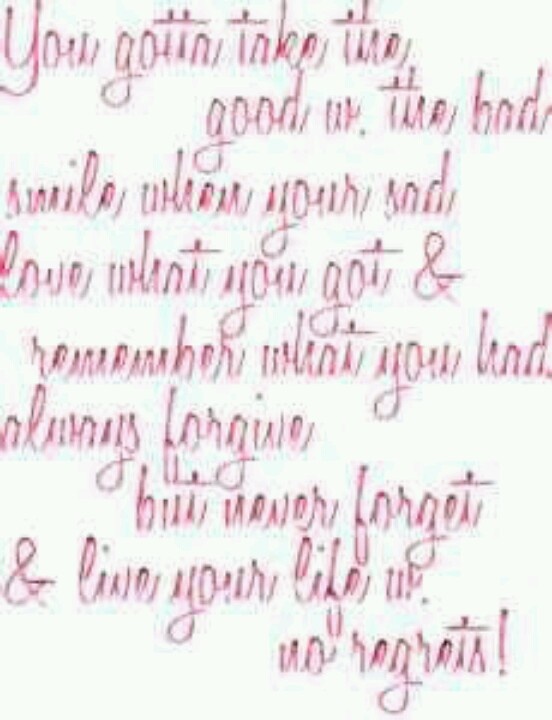 You gotta take the
good w. the bad
smile when your sad
Love what you got &
remember what you had
always forgive
but never forget
& live your life w.
no regrets!